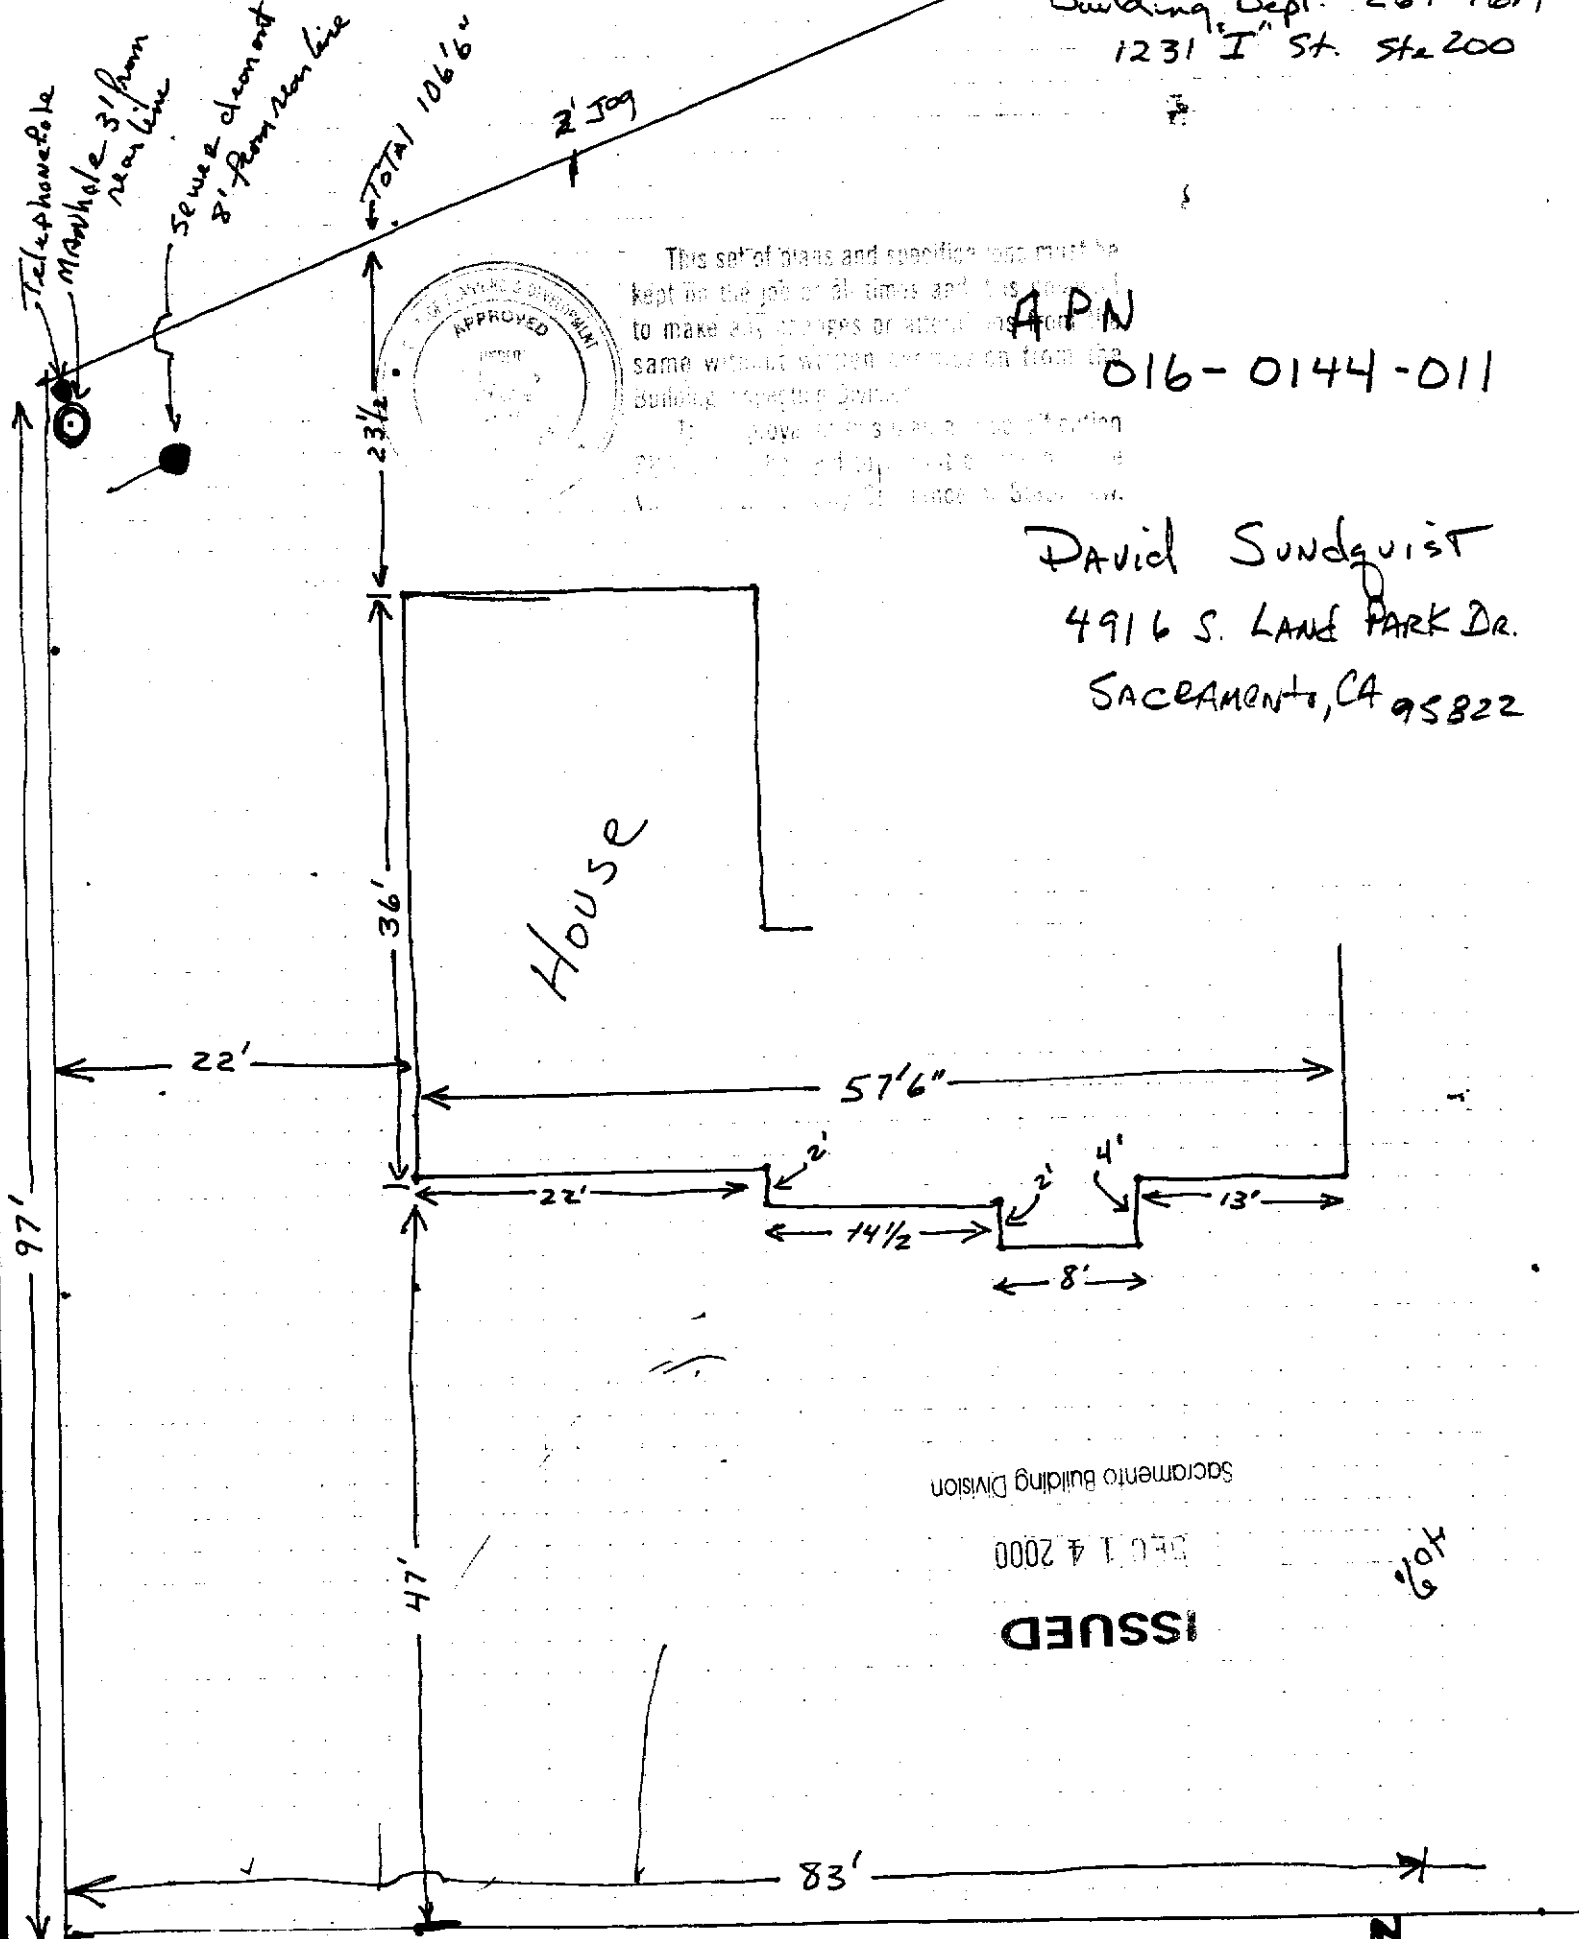 Building Dept.
1231 "I" St. Ste 200
TelephonePole
MANhole 3' from
rear line
Sewer cleanout
8' from rear line
TOTAL 106'6"
2' Jog
This set of plans and specifications must be
kept on the job at all times and
to make any changes or alterations from the
same without written permission from the
Building Inspection
APPROVED
APN
016-0144-011
23½'
DAvid SuNdquisT
4916 S. LANd PARK DR.
SACRAMENto, CA 95822
House
36'
22'
57'6"
2'
2'
4'
22'
14½
13'
8'
97'
47'
Sacramento Building Division
DEC 14 2000
ISSUED
83'
N